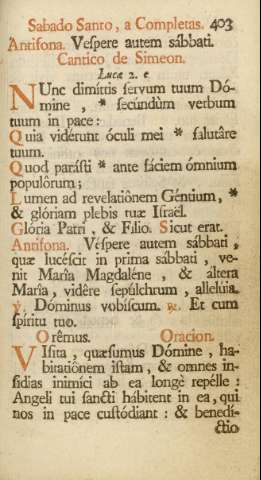 Sabado Santo, a Completas. 403
Antifona. Vespere autem sábbati.
Cantico de Simeon.
Lucæ 2. e
NUnc dimíttis servum tuum Dó-
mine, * secúndùm verbum
tuum in pace:
Quia vidérunt óculi mei * salutáre
tuum.
Quod parásti * ante fáciem ómnium
populórum;
Lumen ad revelatiônem Géntium, *
& glóriam plebis tuæ Israël.
Glória Patri, & Filio. Sicut erat.
Antifona. Véspere autem sábbati,
quæ lucéscit in prima sábbati, ve-
nit María Magdaléne, & áltera
María, vidêre sepúlchrum, allelúia.
℣. Dóminus vobíscum. ℟. Et cum
spíritu tuo.
Orêmus. Oracion.
VIsita, quæsumus Dómine, ha-
bitatiônem istam, & omnes in-
sídias inimíci ab ea longè repélle:
Angeli tui sancti hábitent in ea, qui
nos in pace custódiant: & benedí-
ctio